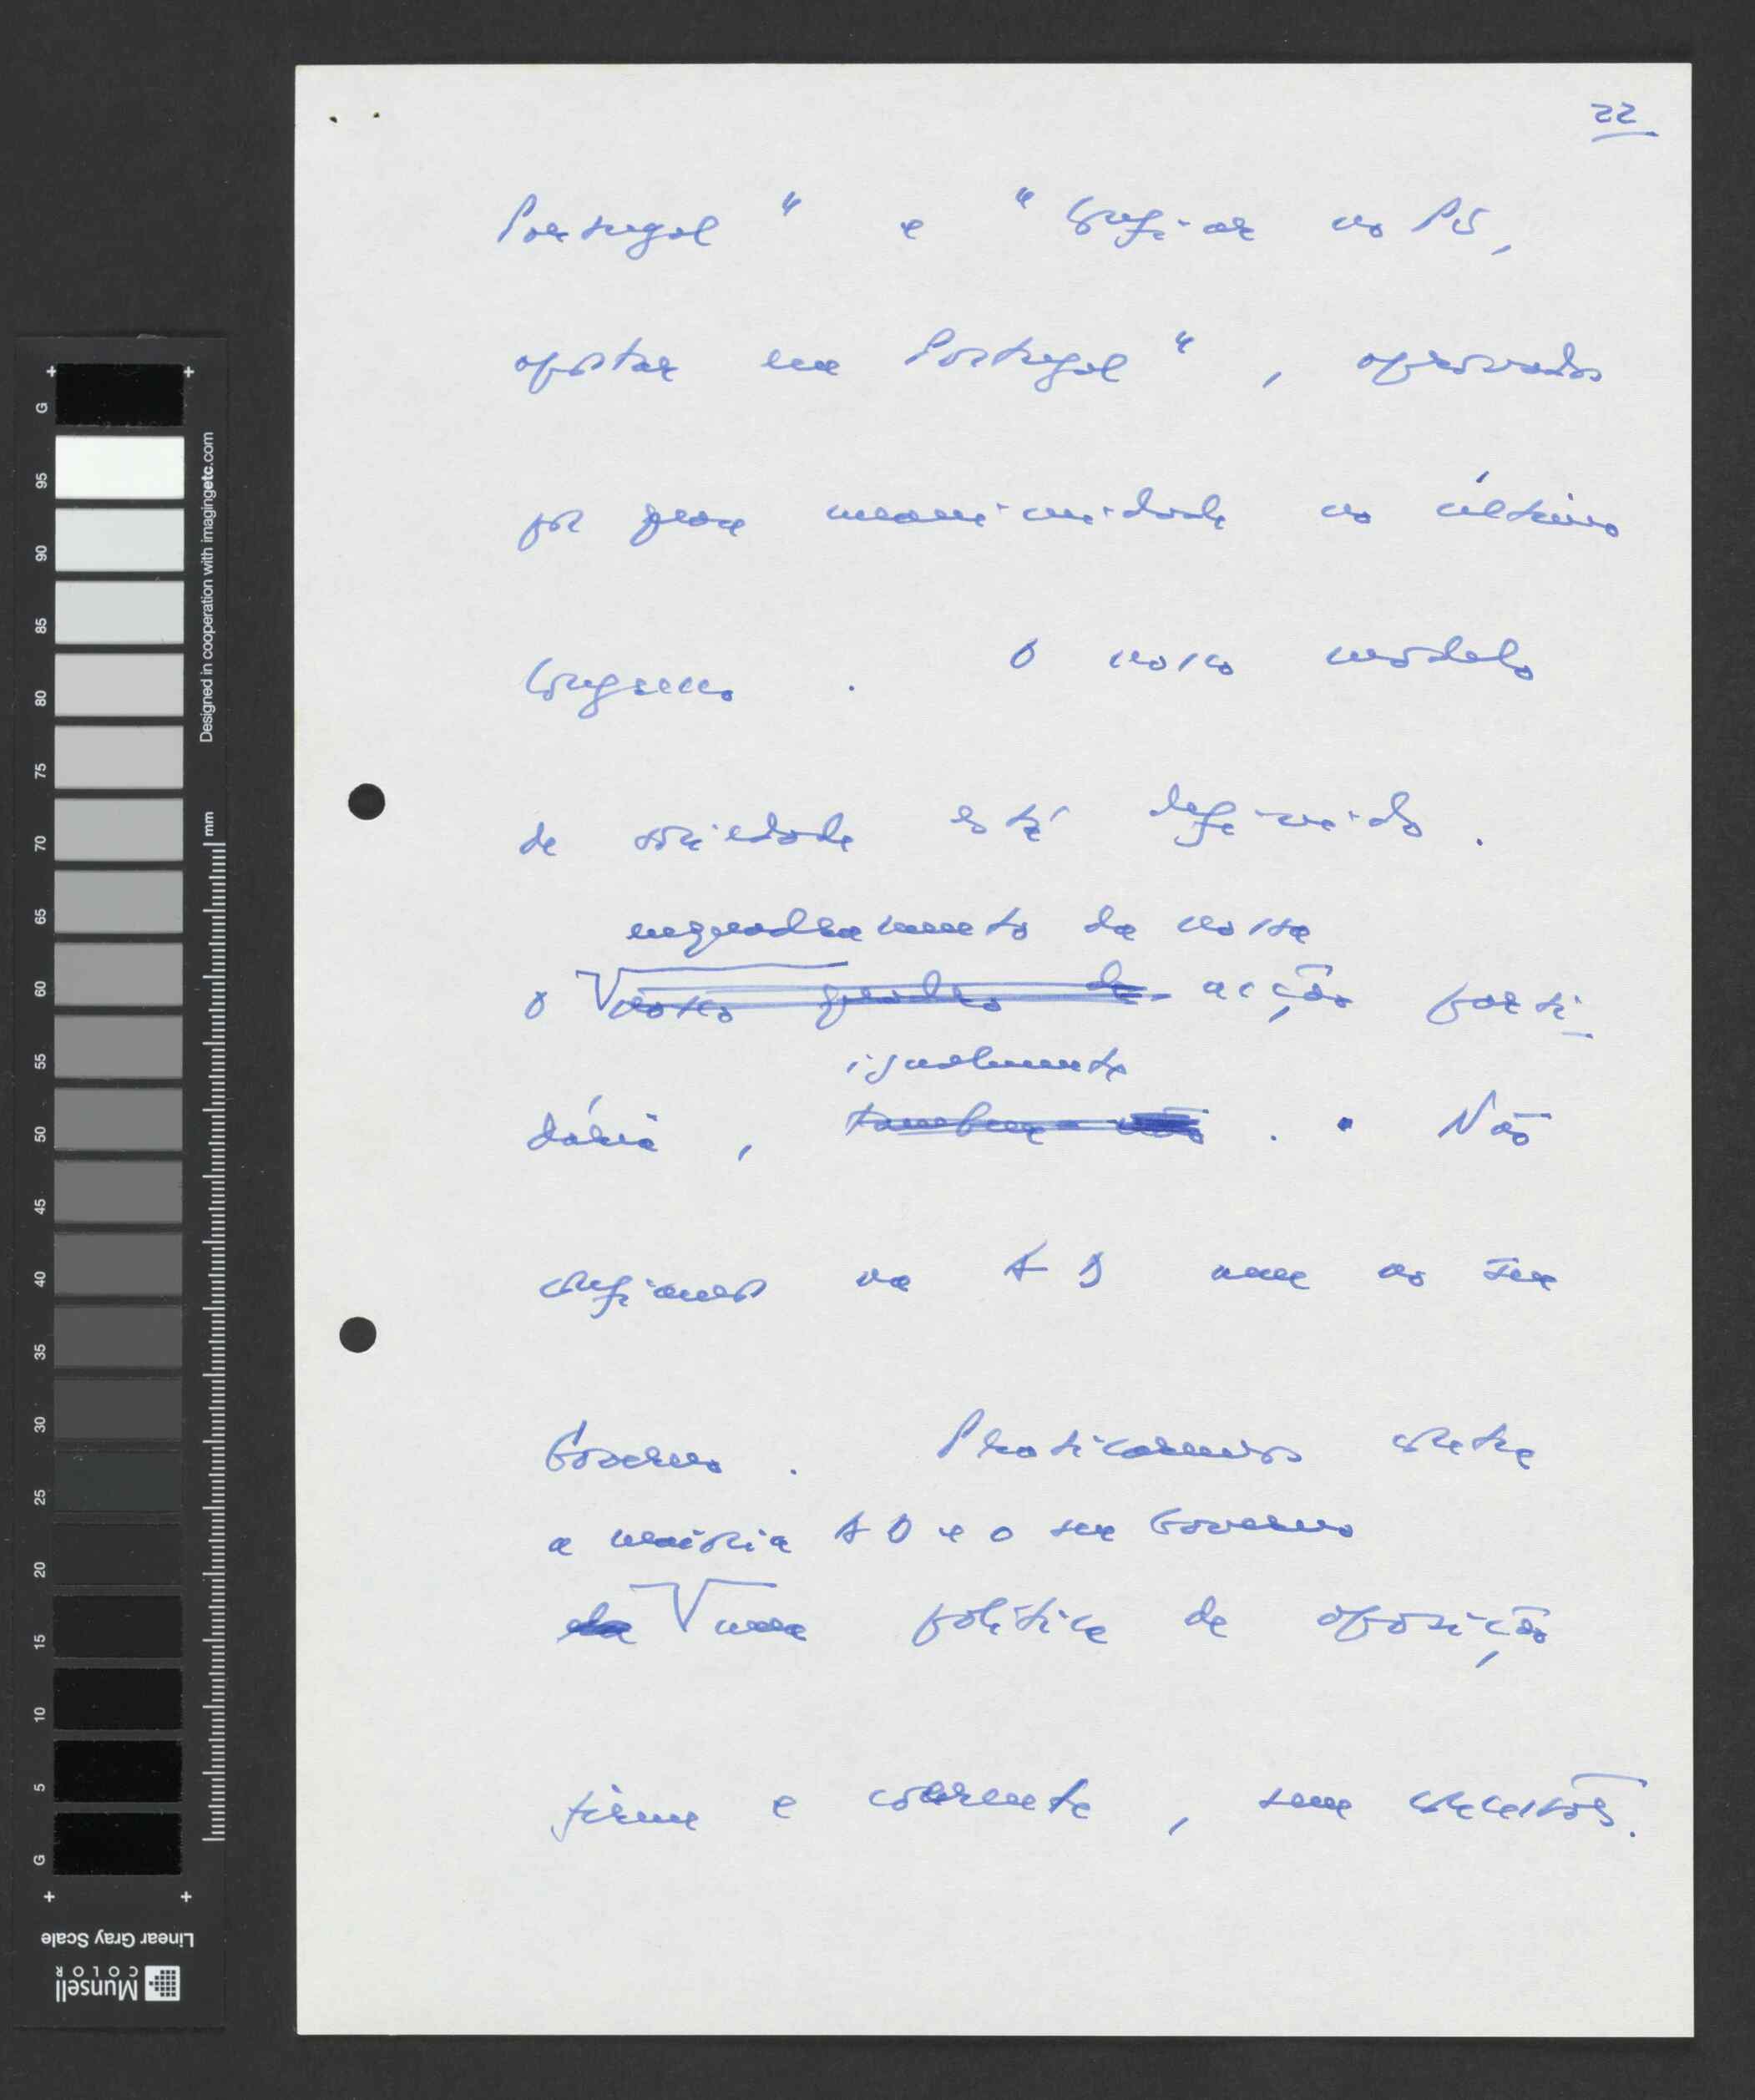 22
Portugal" e "Confiar no PS,
apostar em Portugal", aprovados
por quase unanimidade no último
Congresso. O nosso modelo
de sociedade está definido.
enquadramento da nossa
O nosso quadro de acção parti-
dária, igualmente
também . Não
confiamos na AD nem no seu
Governo. Praticaremos contra
a maioria AD e o seu Governo
uma política de oposição
firme e coerente, sem concessões.
G 95 90 85 80 75 70 65 60 55 50 45 40 35 30 25 20 15 10 5 G
Designed in cooperation with imagingetc.com
mm
Linear Gray Scale
Munsell
COLOR